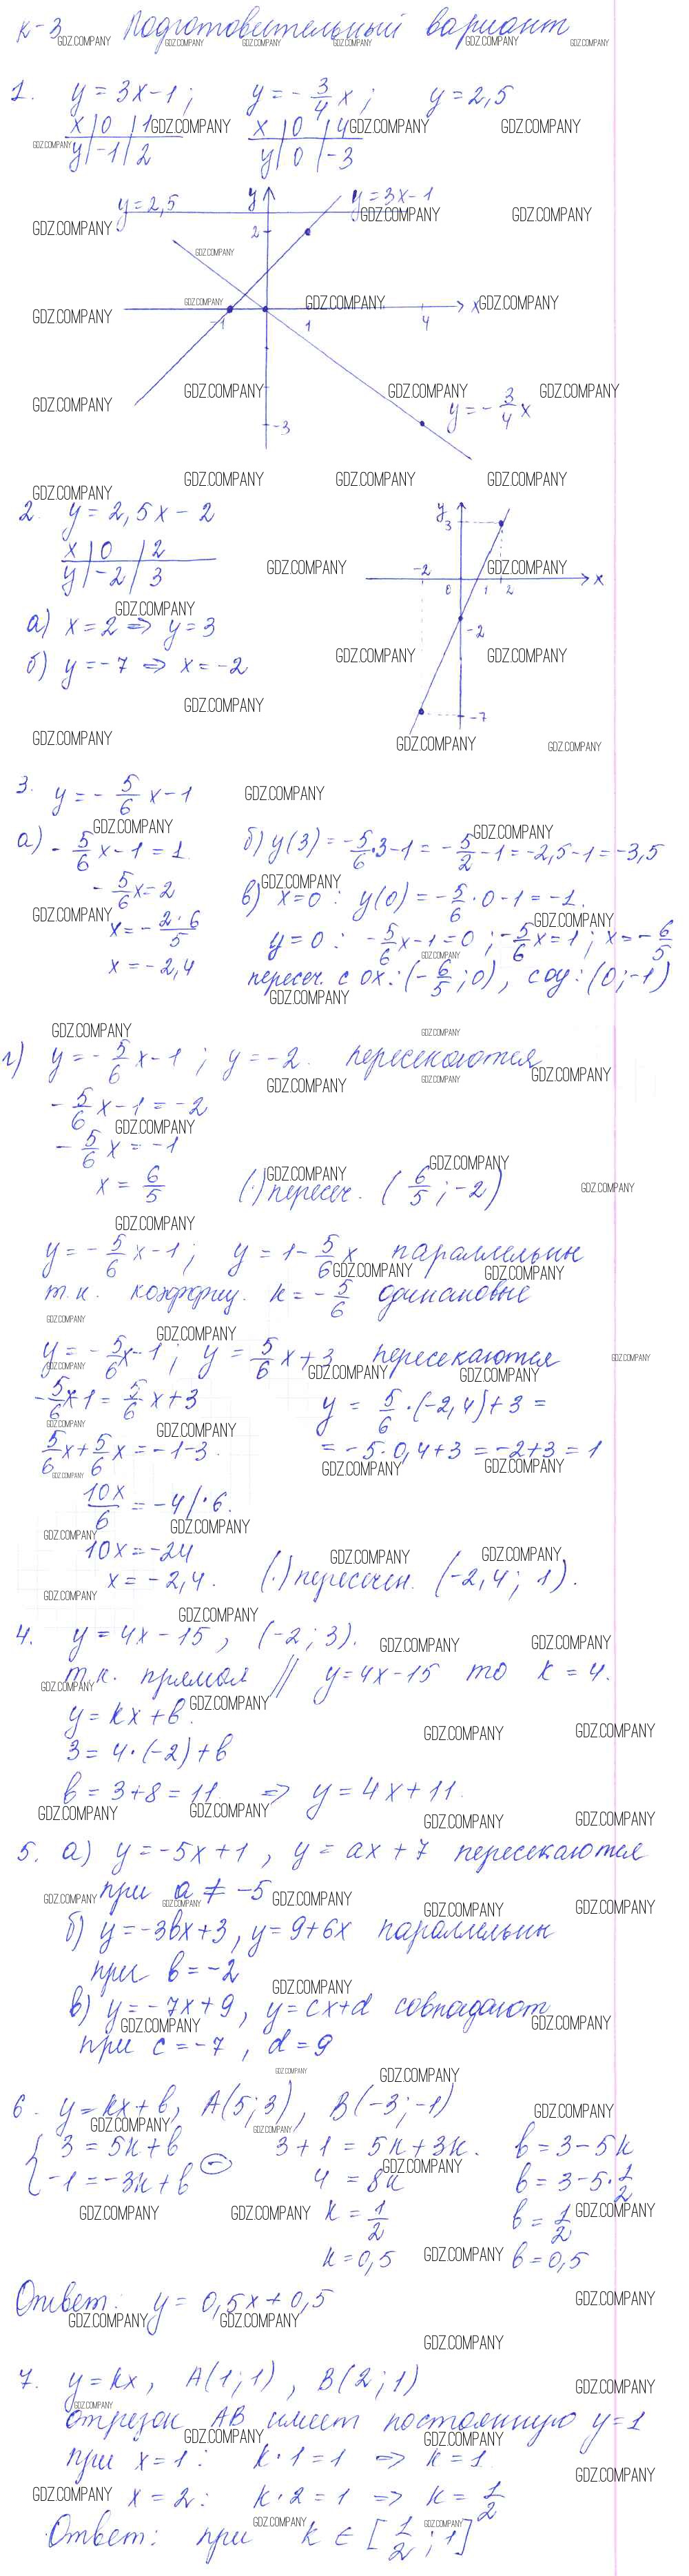 К-3 Подготовительный вариант
1. y = 3x-1; y = -3/4 x; y = 2,5
x | 0 | 1      x | 0 | 4
y | -1 | 2      y | 0 | -3
y=2,5 y y=3x-1
2
-1 1 4 x
y = -3/4 x
-3
2. y = 2,5x - 2
x | 0 | 2
y | -2 | 3
а) x = 2 => y = 3
б) y = -7 => x = -2
y
3
-2 0 1 2 x
-2
-7
3. y = -5/6 x - 1
а) -5/6 x - 1 = 1.
-5/6 x = 2
x = -2·6/5
x = -2,4
б) y(3) = -5/6·3-1 = -5/2-1 = -2,5-1 = -3,5
в) x=0: y(0) = -5/6·0-1 = -1.
y=0: -5/6x-1=0; -5/6x=1; x=-6/5
пересеч. с ox: (-6/5; 0), с oy: (0; -1)
г) y = -5/6 x - 1; y = -2. пересекаются
-5/6 x - 1 = -2
-5/6 x = -1
x = 6/5 (·) пересеч. (6/5; -2)
y = -5/6 x - 1; y = 1 - 5/6 x параллельны
т.к. коэффиц. k = -5/6 одинаковые
y = -5/6x-1; y = 5/6 x + 3 пересекаются
-5/6x-1 = 5/6 x + 3
5/6x + 5/6x = -1-3.
10x/6 = -4 |·6.
10x = -24
x = -2,4.
y = 5/6·(-2,4)+3 =
= -5·0,4+3 = -2+3 = 1
(·) пересечен. (-2,4; 1).
4. y = 4x-15, (-2; 3).
т.к. прямая // y=4x-15 то k = 4.
y = kx + b.
3 = 4·(-2)+b
b = 3+8 = 11. => y = 4x+11.
5. а) y = -5x+1, y = ax+7 пересекаются
при a ≠ -5
б) y = -3bx+3, y = 9+6x параллельны
при b = -2
в) y = -7x+9, y = cx+d совпадают
при c = -7, d = 9
6. y = kx+b, A(5; 3), B(-3; -1)
{ 3 = 5k+b
-1 = -3k+b (-)
3+1 = 5k+3k.
4 = 8k
k = 1/2
k = 0,5
b = 3-5k
b = 3-5·1/2
b = 1/2
b = 0,5
Ответ: y = 0,5x + 0,5
7. y = kx, A(1; 1), B(2; 1)
отрезок AB имеет постоянную y=1
при x = 1: k·1 = 1 => k = 1.
x = 2: k·2 = 1 => k = 1/2
Ответ: при k ∈ [1/2; 1]
GDZ.COMPANY